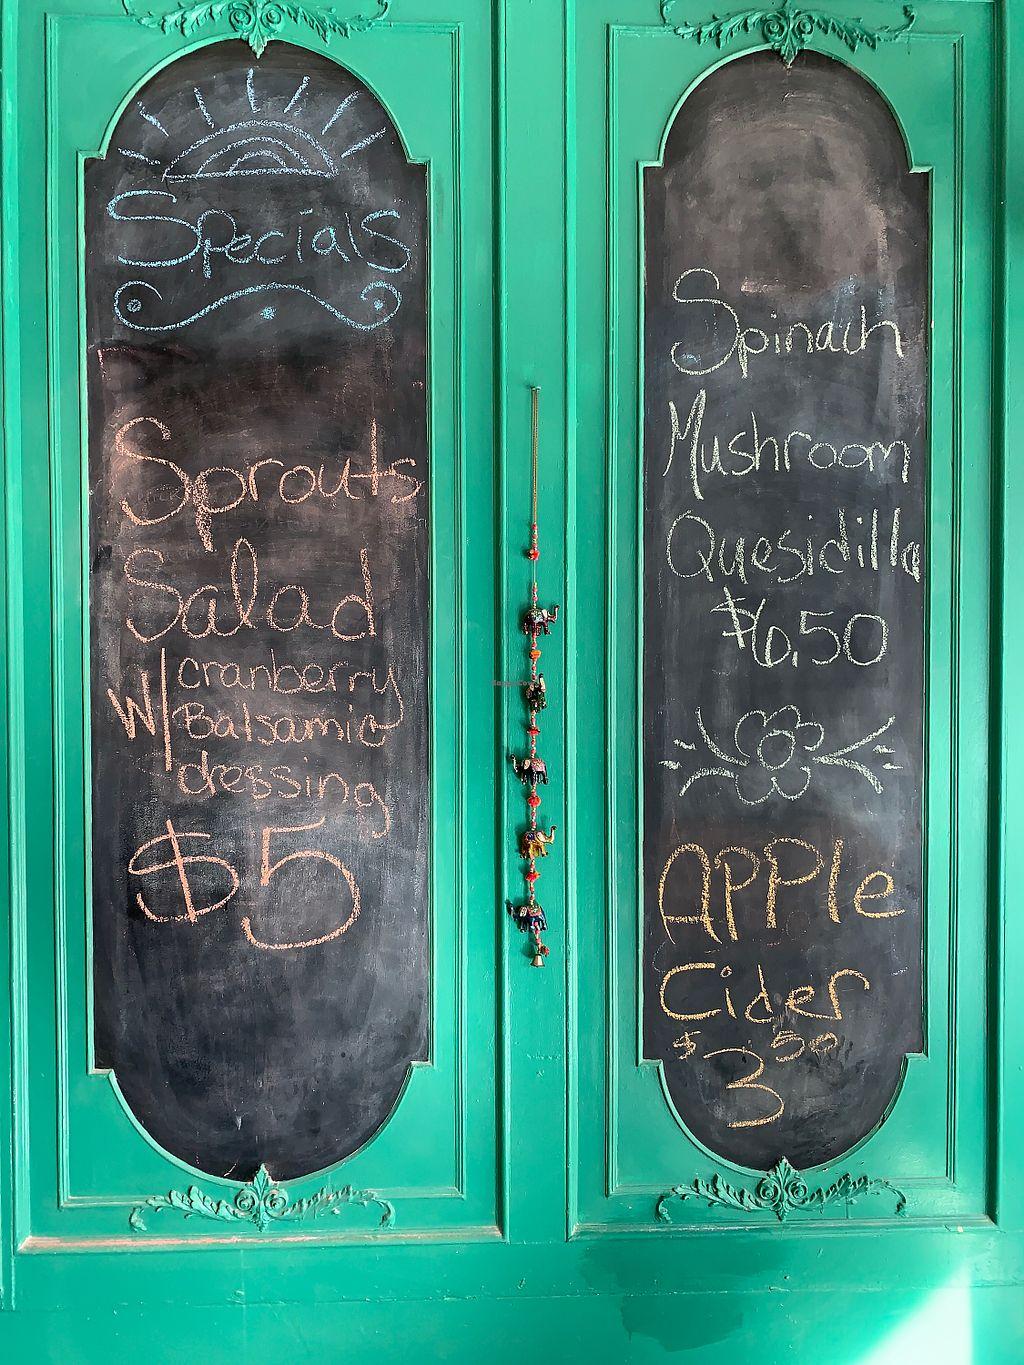 Specials
Sprouts
Salad
w/ cranberry
Balsamic
dressing
$5
Spinach
Mushroom
Quesidilla
$6.50
Apple
Cider
$3.50